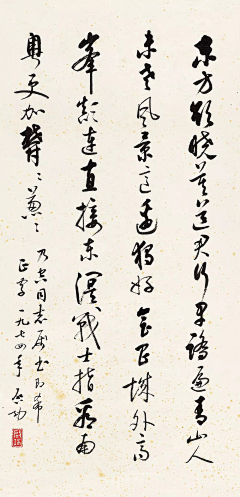 东方欲晓莫道君行早踏遍青山人
未老风景这边独好会昌城外高
峰颠连直接东溟战士指看南
粤更加郁郁葱葱
同志属书即希
正字一九七四年启功